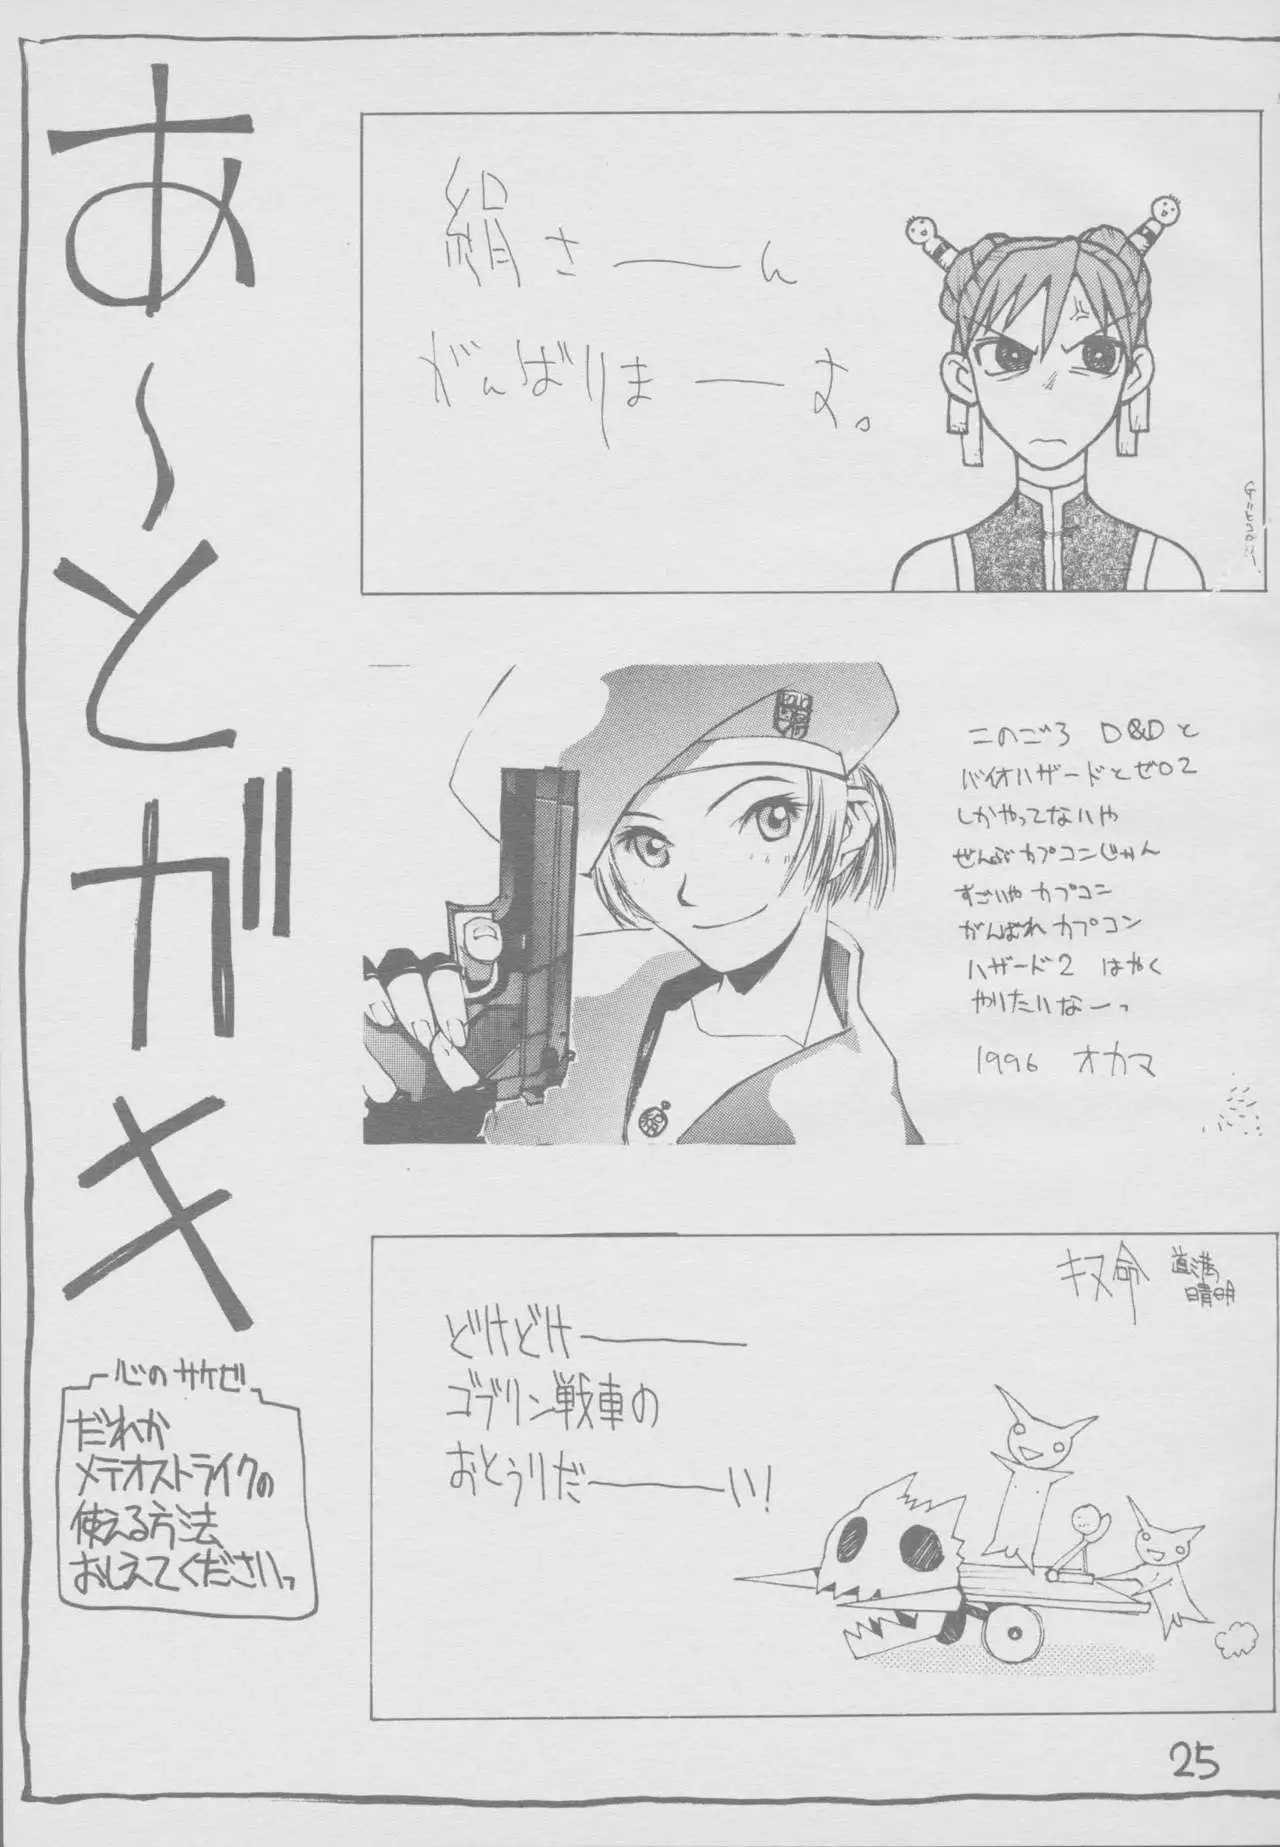 あ～とがキ
絹さーーん
がんばりまーーす。
このごろ D&Dと
バイオハザードとゼロ2
しかやってないや
ぜんぶカプコンじゃん
すごいやカプコン
がんばれカプコン
ハザード2 はやく
やりたいなーっ
1996 オカマ
キヌ命
道満
晴明
どけどけーーー
ゴブリン戦車の
おとうりだーーーい!
心のサケビ
だれか
メテオストライクの
使える方法
おしえてくださいっ
25